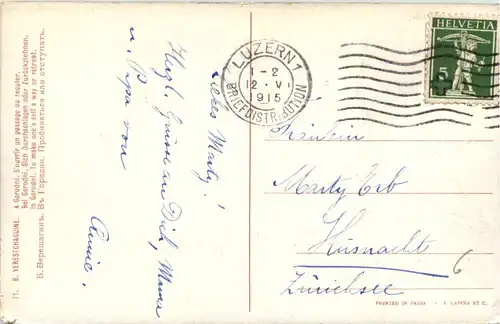 71. B. VERESTCHAGUINE. A Gorodni. S'ouvrir un passage ou reculer.
bei Gorodni. Sich Durchschlagen oder Zurückziehen.
in Gorodni. To make one's self a way or retreat.
Б. Верещагинъ. Въ Городни. Пробиваться или отступать.
Liebes Marty!
Herzl. Grüsse an Dich, Mama
u. Papa von
Annie.
LUZERN 1
1-2
12. VI
1915
BRIEFDISTRIBUTION
HELVETIA
5
Fräulein
Marty Erb
Küsnacht
Zürichsee
6
PRINTED IN PARIS - I. LAPINA ET C.